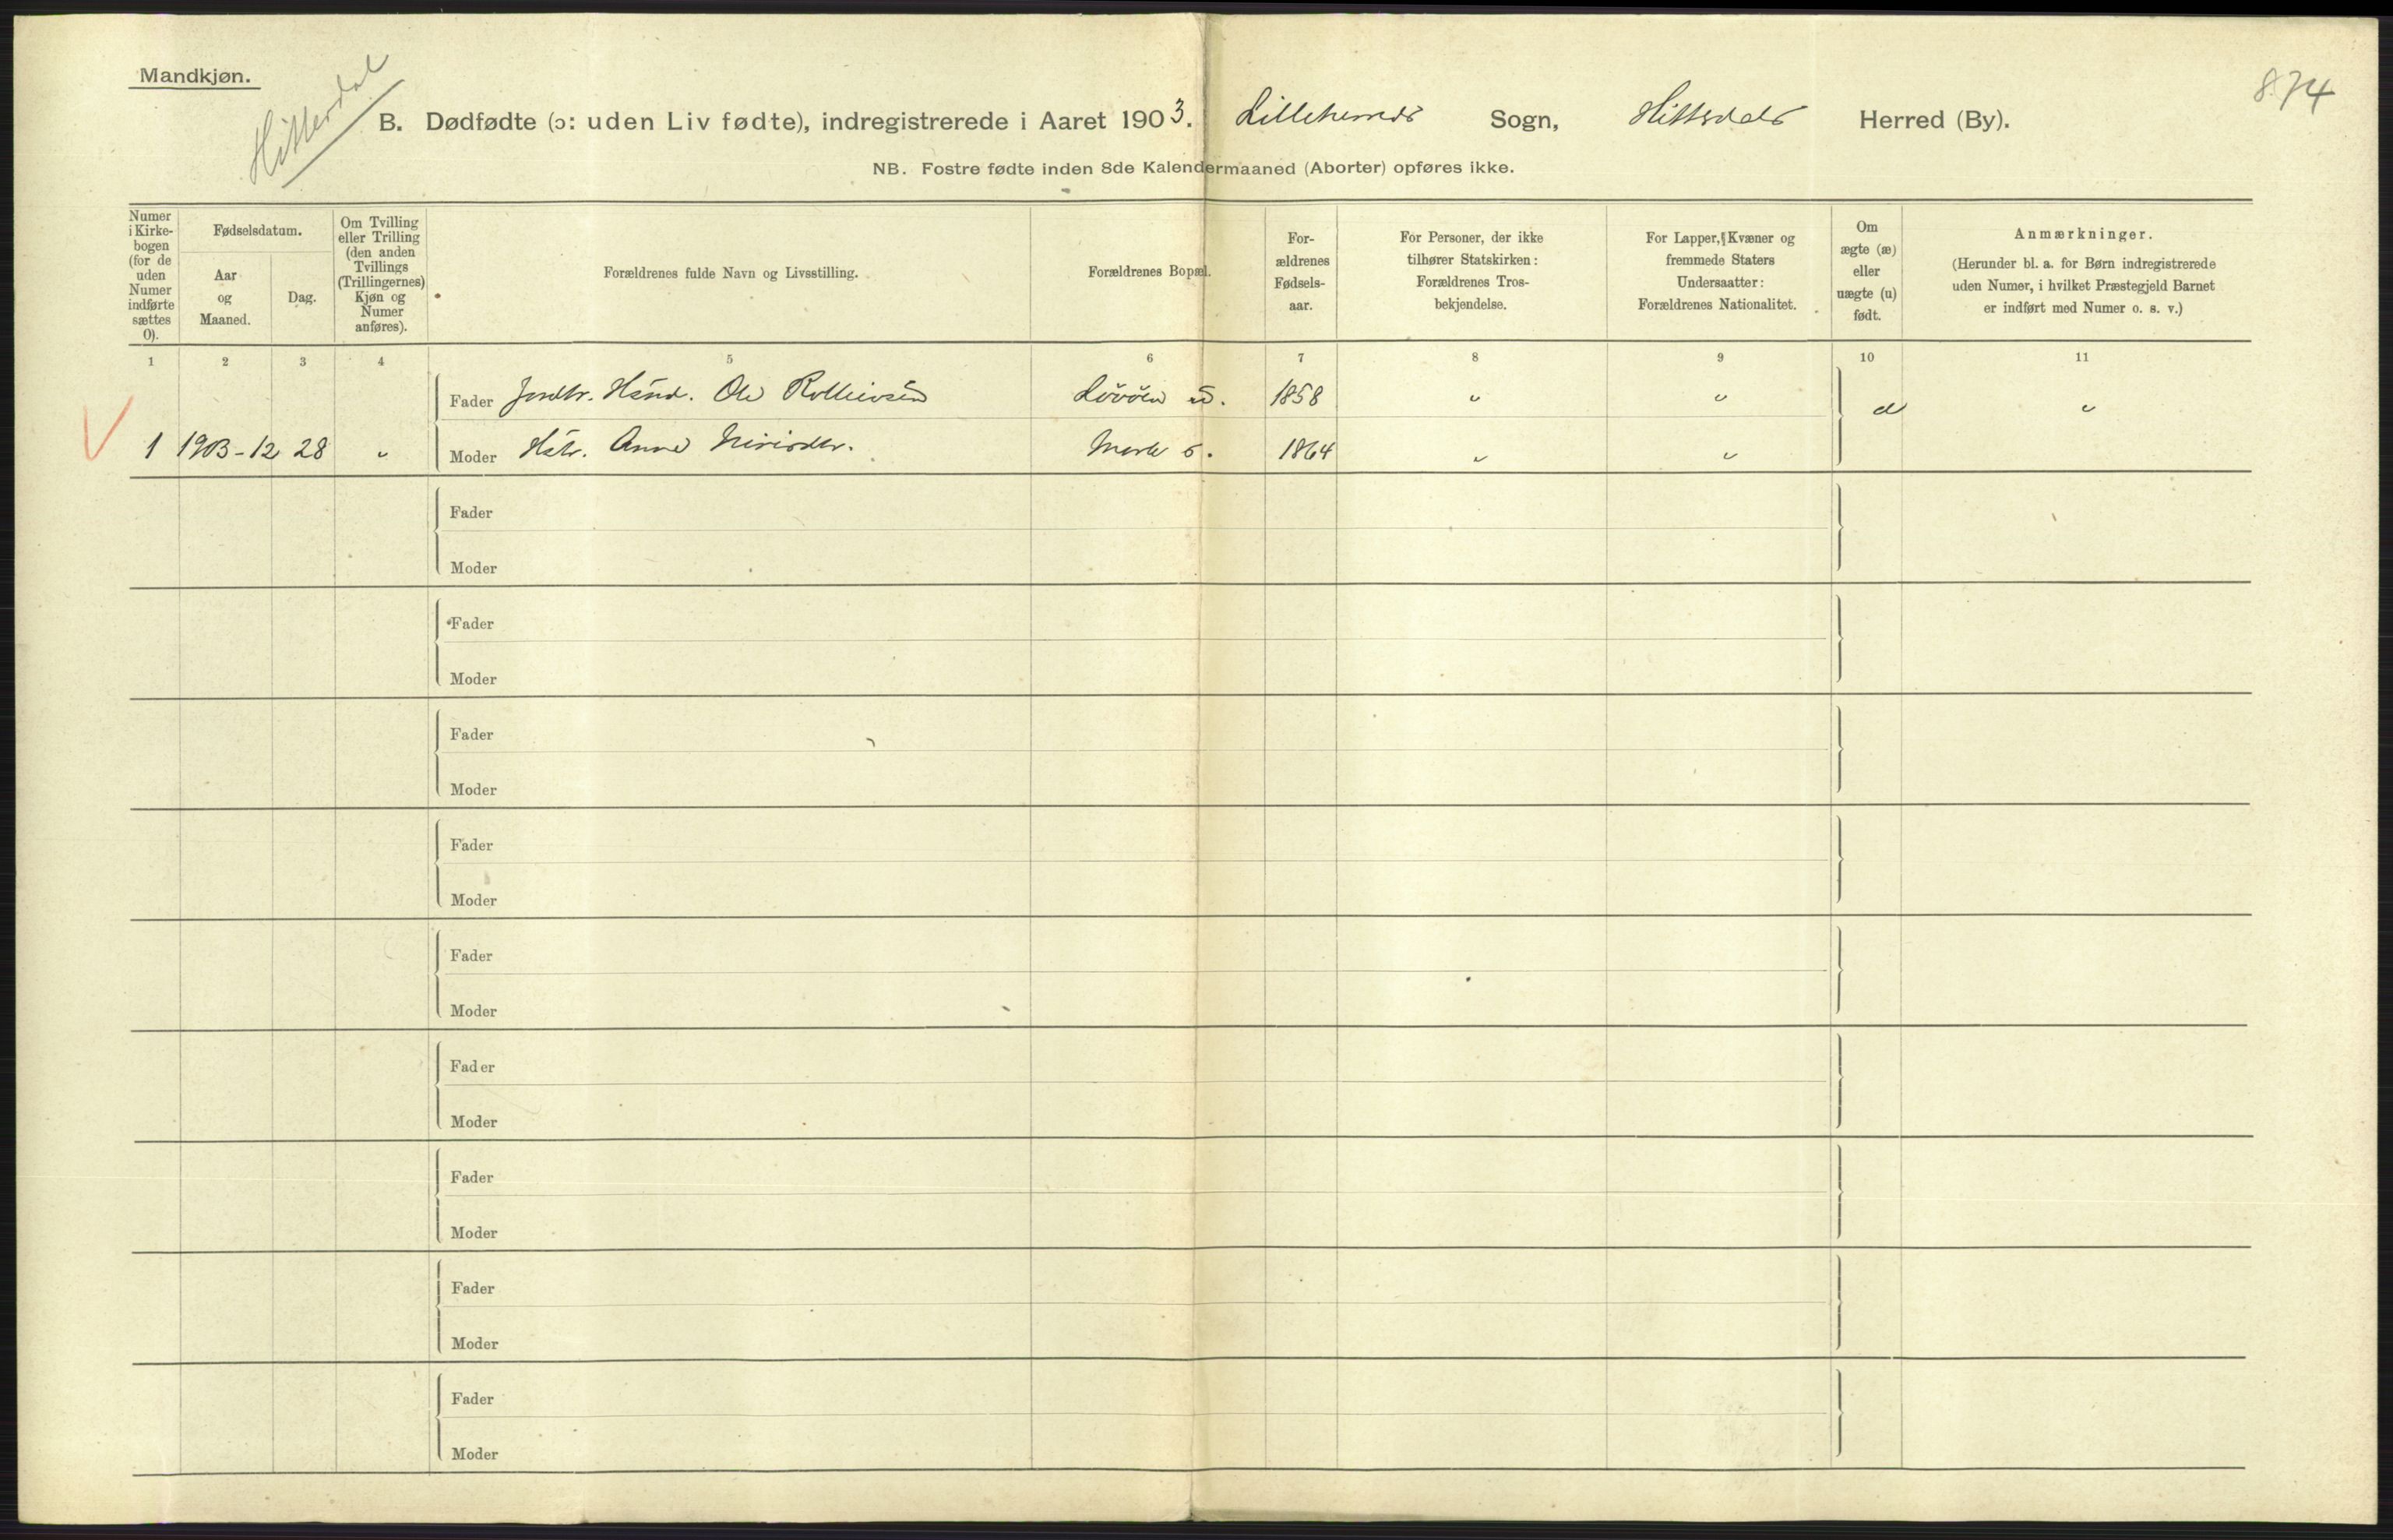 Mandkjøn.
Hitterdal
874
B. Dødfødte (ɔ: uden Liv fødte), indregistrerede i Aaret 1903. Lilleherreds Sogn, Hitterdals Herred (By).
NB. Fostre fødte inden 8de Kalendermaaned (Aborter) opføres ikke.
Numer i Kirke-bogen (for de uden Numer indførte sættes 0).
Fødselsdatum.
Aar og Maaned.
Dag.
Om Tvilling eller Trilling (den anden Tvillings (Trillingernes) Kjøn og Numer anføres).
Forældrenes fulde Navn og Livsstilling.
Forældrenes Bopæl.
For-ældrenes Fødsels-aar.
For Personer, der ikke tilhører Statskirken: Forældrenes Tros-bekjendelse.
For Lapper, Kvæner og fremmede Staters Undersaatter: Forældrenes Nationalitet.
Om ægte (æ) eller uægte (u) født.
Anmærkninger.
(Herunder bl. a. for Børn indregistrerede uden Numer, i hvilket Præstegjeld Barnet er indført med Numer o. s. v.)
1 2 3 4 5 6 7 8 9 10 11
Fader Ole 1858 " "
1 1903-12 28 " Moder Anne 1864 " " "
Fader
Moder
Fader
Moder
Fader
Moder
Fader
Moder
Fader
Moder
Fader
Moder
Fader
Moder
Fader
Moder
Fader
Moder